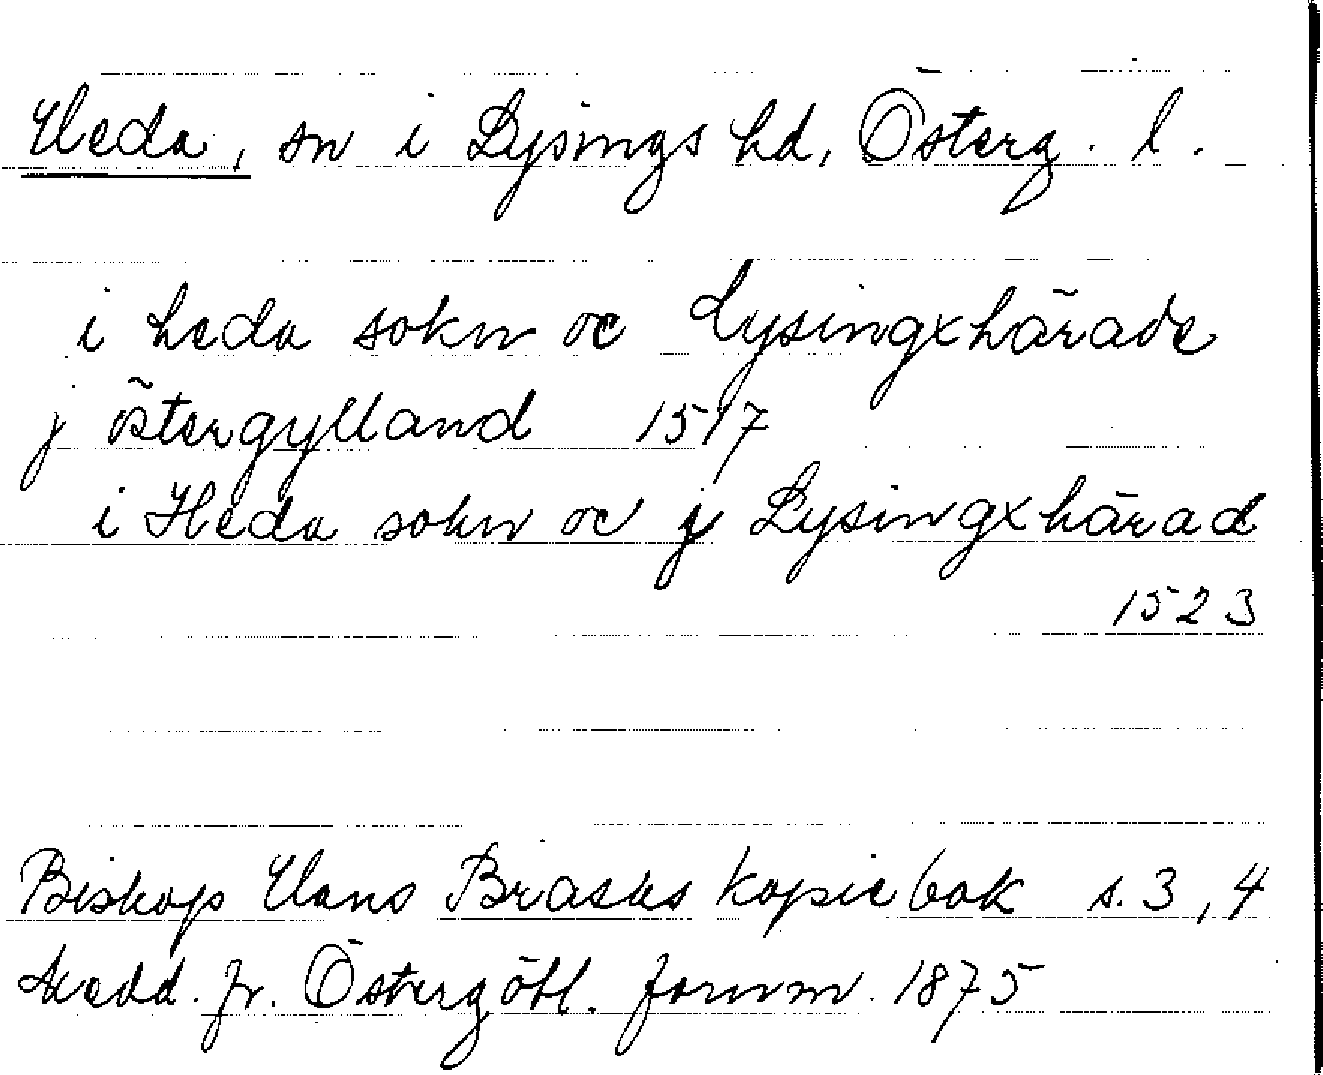 Heda, sn i Lysings hd, Österg. l.
i heda sokn oc Lysingxhärade
j östergylland 1517
i Heda sokn oc j Lysingxhärad
1523
Biskop Hans Brasks kopiebok s. 3, 4
Medd. fr. Östergötl. fornm. 1875